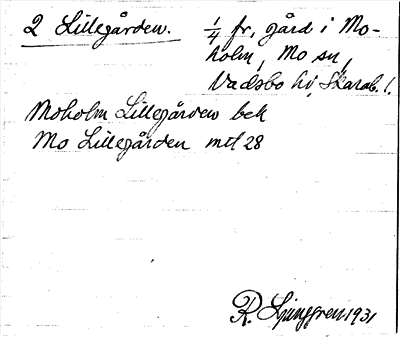 2 Lillegården.
1/4 fr, gård i Mo-
holm, Mo sn,
Vadsbo hd, Skarab. l.
Moholm Lillegården bek
Mo Lillegården mtl 28
R. Ljunggren 1931